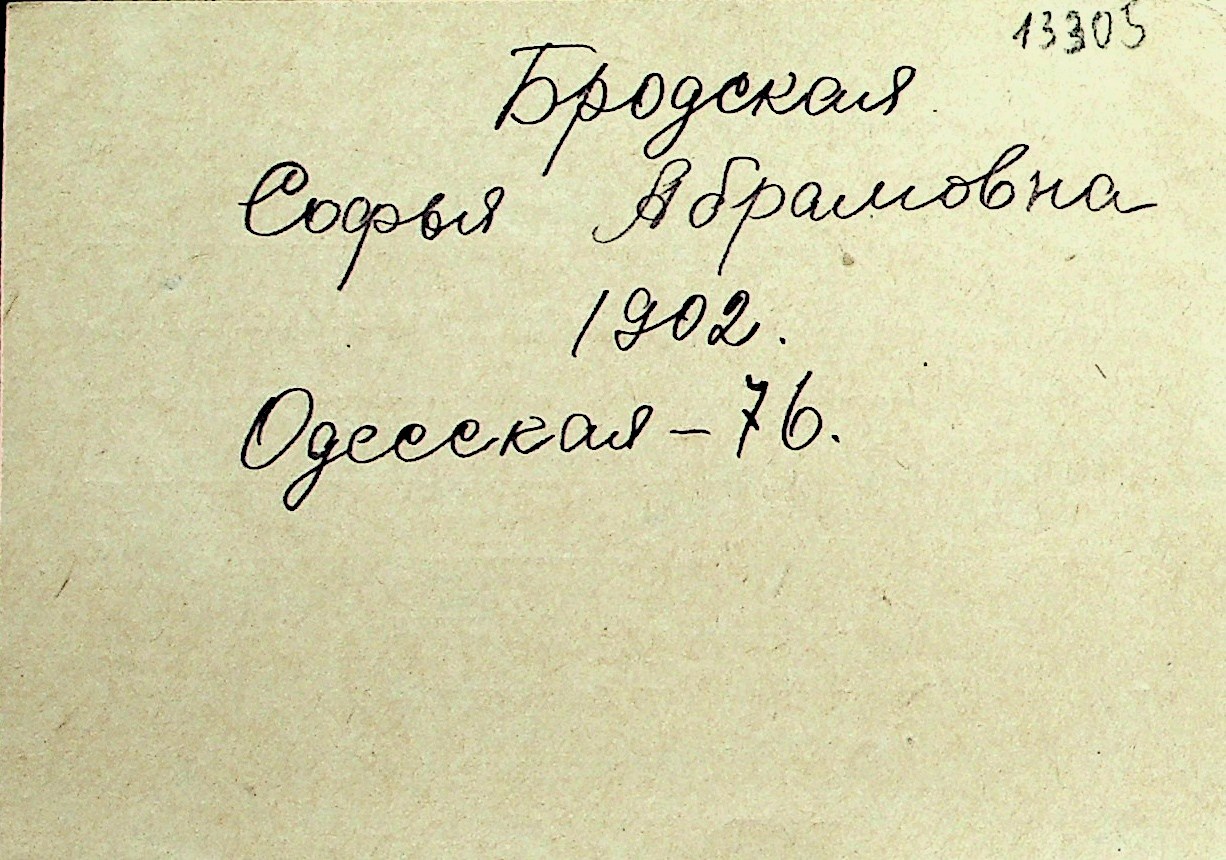 13305
Бродская
Софья Абрамовна
1902.
Одесская - 76.